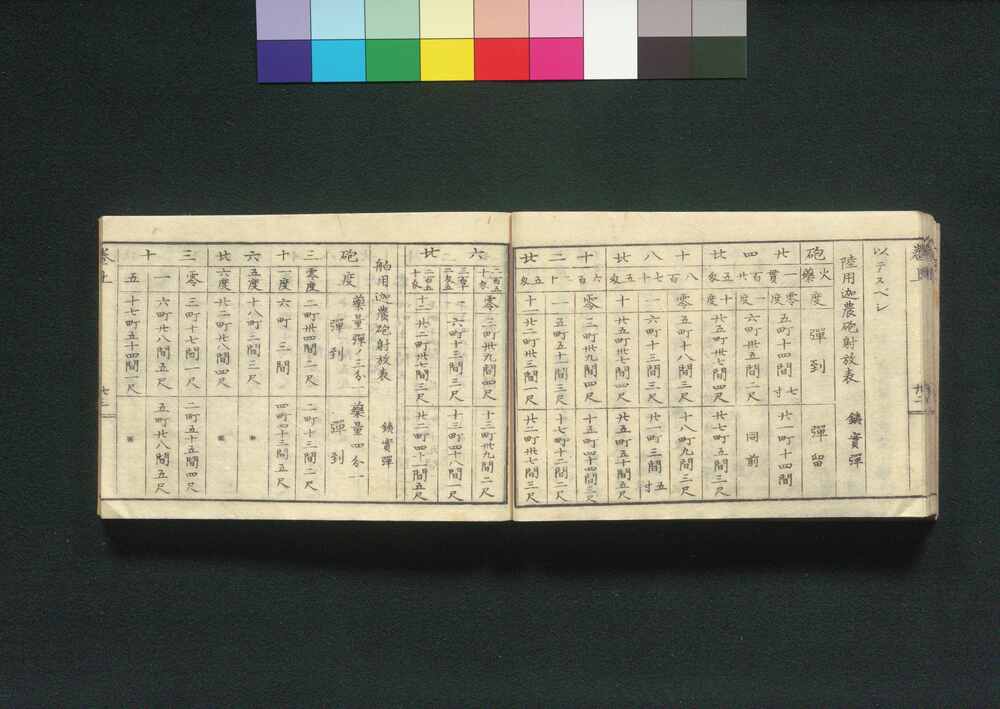 以テスベシ
陸用迦農砲射放表　鐵實彈
砲　火藥　度　彈到　彈留
廿　一貫　零度　五町十四間七寸　廿一町十四間
四　百廿　一度　六町卅五間二尺　同前
廿　五匁　十五度　廿五町卅七間四尺　廿七町卅五間三尺
十　八百　零　五町十八間三尺　十八町九間三尺
八　七十　一　六町十三間三尺　廿一町三間五寸
廿　五匁　十　廿五町卅七間五尺　廿五町五十間五尺
十　六百　零　三町卅九間四尺　十五町四十四間三尺
二　一十　一　五町五十一間三尺　十七町十二間二尺
廿　五匁　十一　廿二町卅三間一尺　廿二町卅七間三尺
六　零　三町卅九間四尺　十三町卅九間二尺
一　六町十三間二尺　十三町四十八間一尺
廿　十二　廿二町卅七間三尺　廿二町四十一間五尺
舶用迦農砲射放表　鐵實彈
砲　度　藥量彈ノ三分一　彈到　藥量四分一　彈到
三　零度　二町卅四間二尺　二町十三間二尺
十　一度　六町三間　四町四十三間五尺
六　五度　十八町三間三尺
廿　六度　廿二町廿八間四尺
三　零　三町十七間一尺　二町五十五間四尺
十　一　六町廿八間五尺　五町廿八間五尺
五　十七町五十四間一尺
卷上